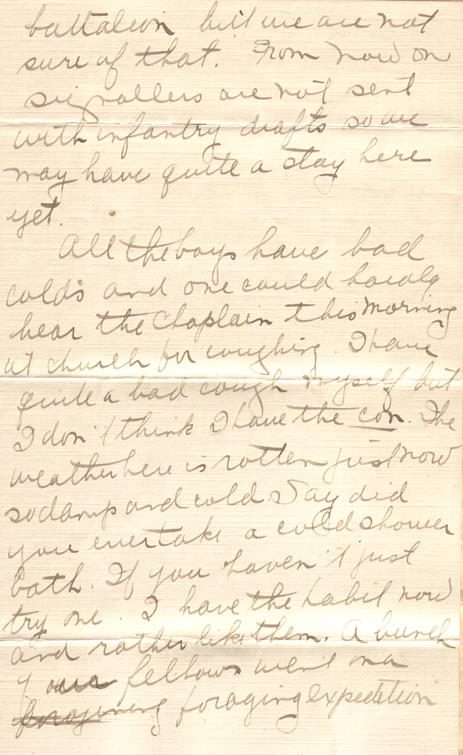 battalion but we are not
sure of that. From now on
signallers are not sent
with infantry drafts so we
may have quite a stay here
yet.
All the boys have bad
colds and one could hardly
hear the Chaplain this morning
at church for coughing. I have
quite a bad cough myself but
I don't think I have the con. The
weather here is rotten just now
so damp and cold. Say did
you ever take a cold shower
bath. If you haven't just
try one. I have the habit now
and rather like them. A bunch
of our fellows went on a
foraging expedition